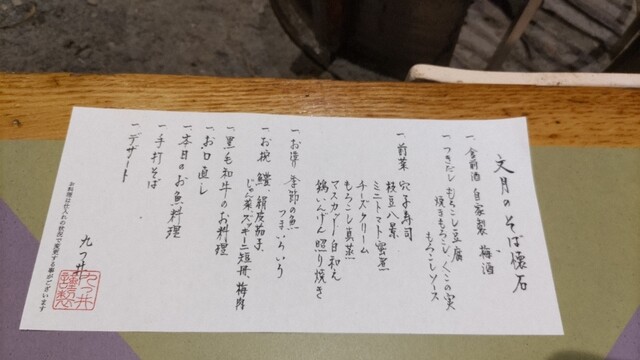 文月のそば懐石
一、食前酒 自家製 梅酒
一、つきだし もろこし豆腐
焼きもろこし くこの実
もろこしソース
一、前菜 穴子寿司
枝豆八景
ミニトマト蜜煮
チーズクリーム
マスカット白和え
もろこし真蒸
鶏いんげん照り焼き
一、お準 季節の魚
つまいろいろ
一、お椀 鱧 絹皮茄子
じゅん菜 ズッキーニ短冊 梅肉
一、黒毛和牛のお料理
一、お口直し
一、本日のお魚料理
一、手打そば
一、デザート
九つ井
お料理は仕入れの状況で変更する事がございます